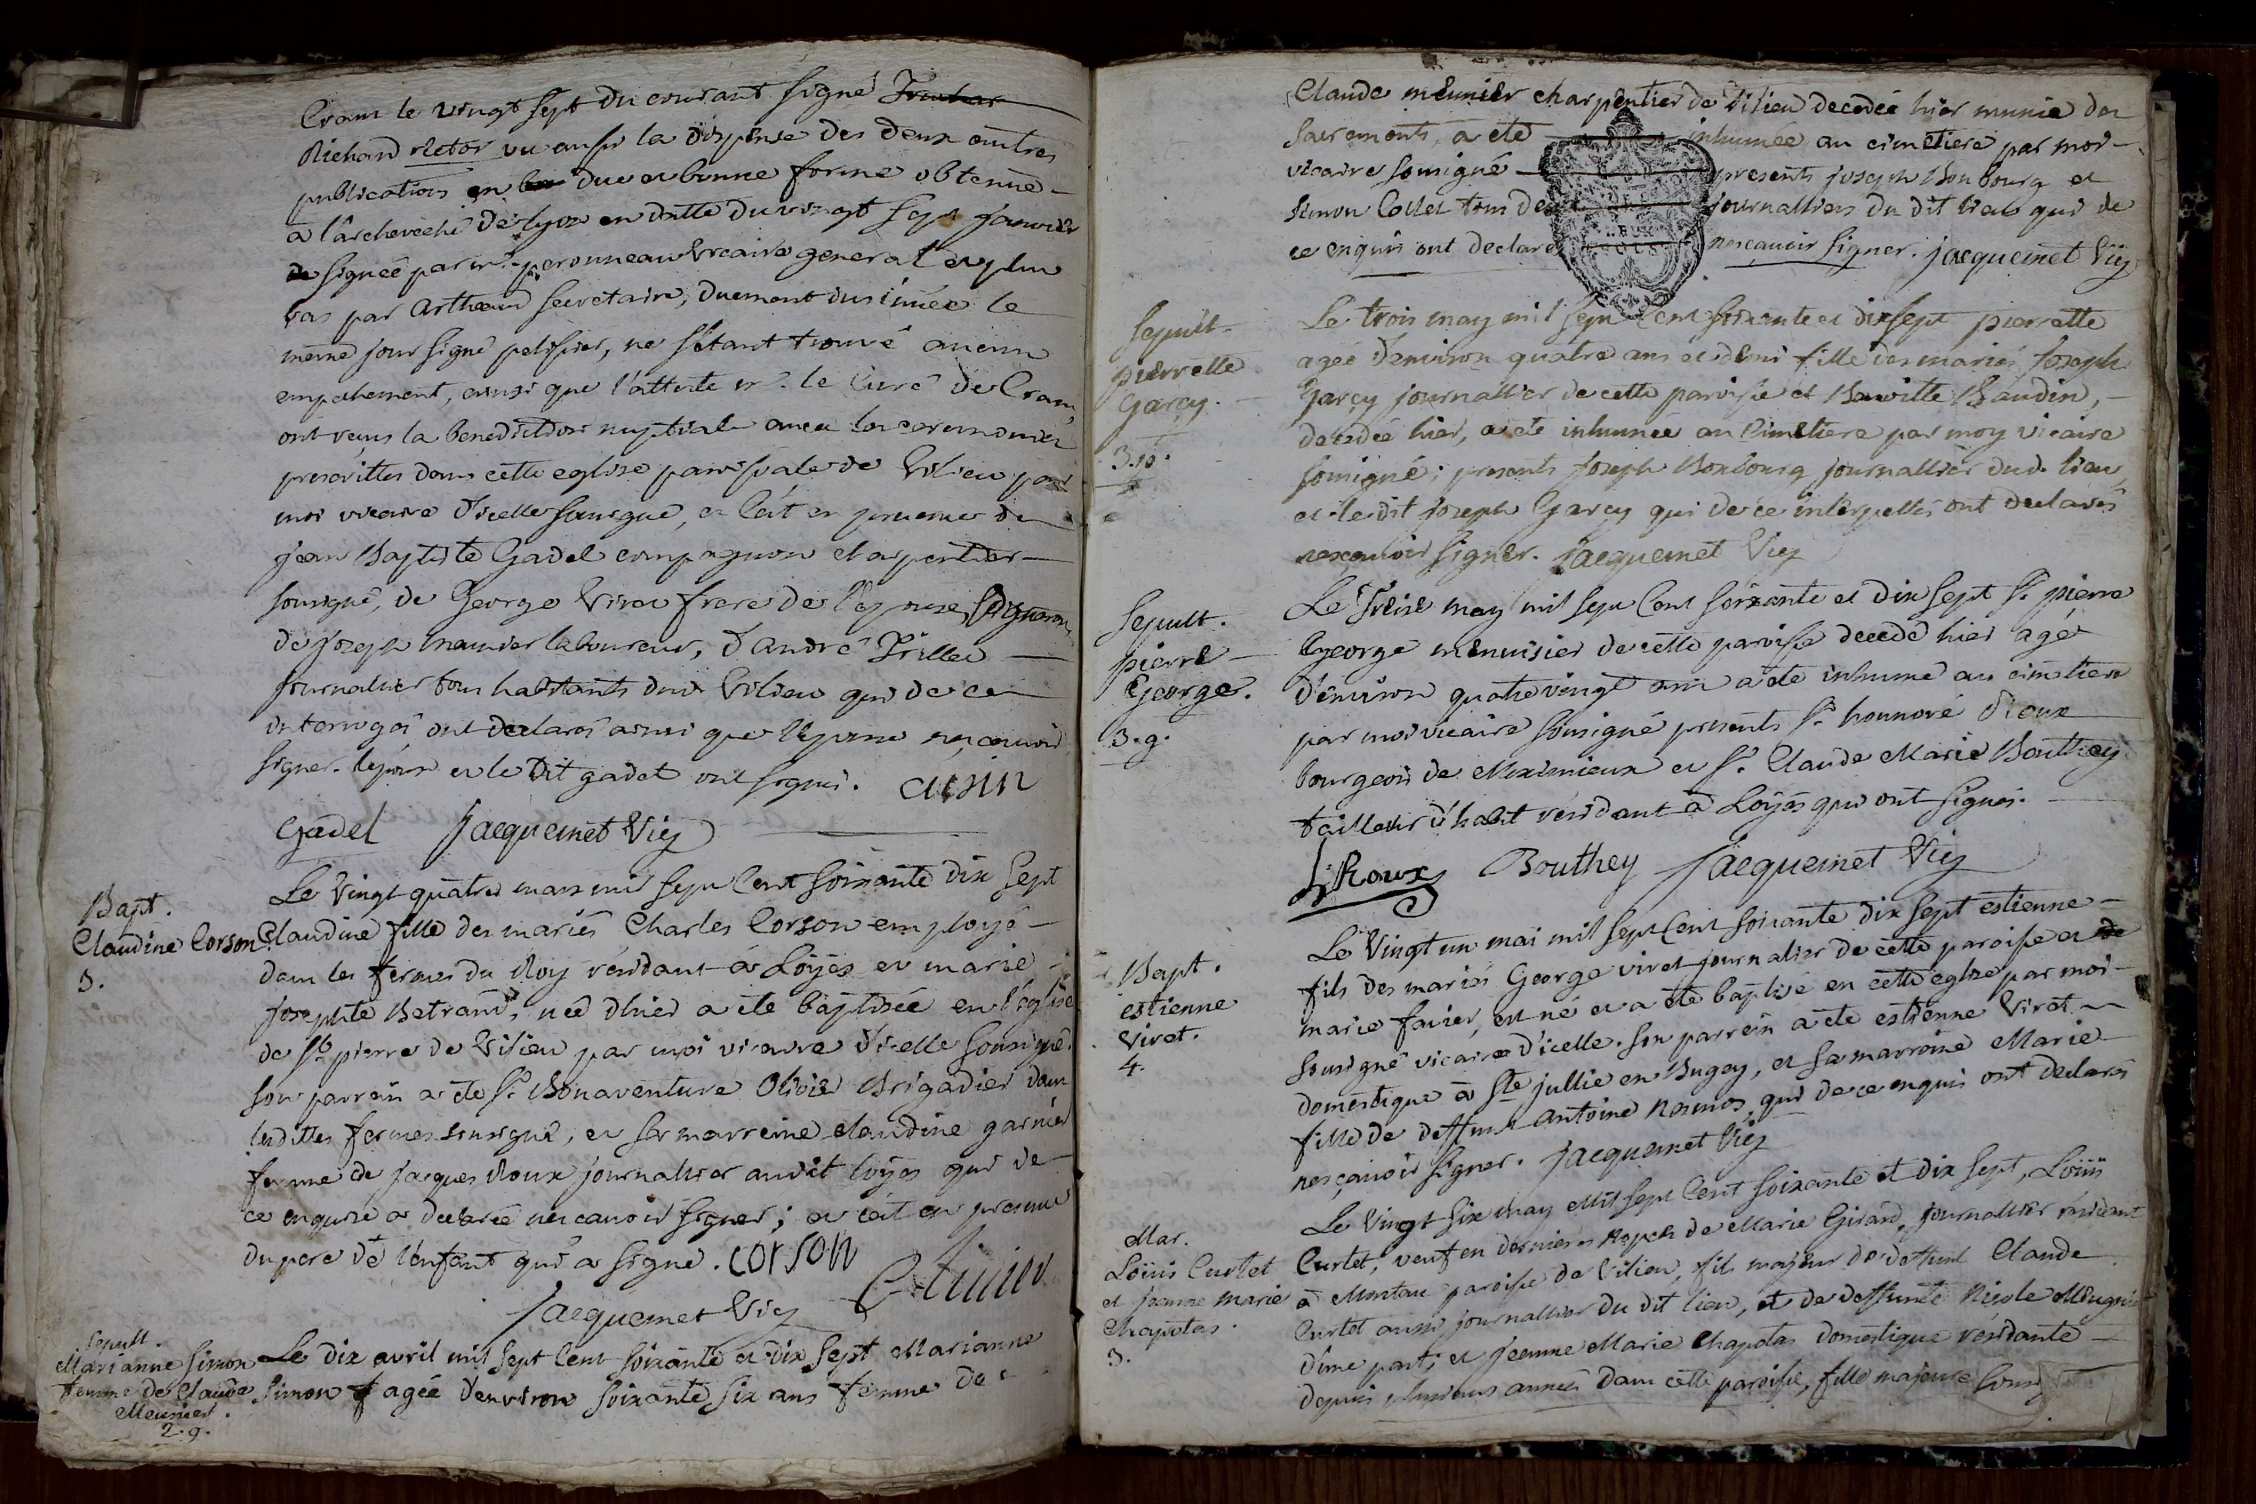 Crans le vingt sept du courant signé
Richard rector vu aussi la dispense des deux autres
publications en due et bonne forme obtenue
a l'archeveché de lyon en datte du vingt sept janvier
signée par mr. peronneau vicaire general et plus
bas par Arthaud secretaire, duement insinuée le
même jour signé pelissier, ne s'étant trouvé aucun
empechement, ainsi que l'atteste mr. le Curé de Crans,
ont reçus la benediction nuptiale avec les ceremonies
prescrittes dans cette eglise paroissiale de Vilieu par
moi vicaire d'icelle sousigné, et c'a été en presence de
jean Baptiste Gadel compagnon charpentier
sousigné, de George Viret frere de l'epouse,
de joseph meunier laboureur, d'andré Trillet
journalier tous habitants dud. Vilieu qui de ce
interrogés ont declarés ainsi que l'epouse nesçavoir
signer. l'epoux et le dit gadel ont signés.
Gadel jacquemet Vic
Bapt.
Claudine Corson
3.
Le vingt quatre mars mil sept Cent soixante dix sept
Claudine fille des mariés Charles Corson employé
dans les fermes du Roy résidant à Loÿes et marie
josephte Betrand, née d'hier a eté baptisée en l'eglise
de St. pierre de Vilieu par moi vicaire d'icelle sousigné.
son parrein a eté Sr. Bonaventure Olivié Brigadier dans
lesdittes fermes sousigné, et sa marreine claudine garnier
femme de jacques Roux journalier audit loÿes qui de
ce enquise a declaré nescavoir signer; et c'a été en presence
du pere de l'enfant qui a signé. corson
jacquemet Vic
Sepult.
Marianne Simon
femme de Claude
Meunier.
2. g.
Le dix avril mil sept Cent soixante et dix sept Marianne
Simon agée d'environ soixante six ans femme de
Claude meunier charpentier de Vilieu decedée hier munie des
sacrements, a eté inhumée au cimetiere par moi
vicaire sousigné presents joseph Bonbourg et
simon Collet tous deux journalliers du dit lieu qui de
ce enquis ont declaré nesçavoir signer. jacquemet Vic
Sepult.
pierrette
Garcy.
Le trois may mil sept Cent soixante et dix sept pierrette
agée d'environ quatre ans et demi fille des mariés Joseph
Garcy journallier de cette paroisse et Baudin,
decedée hier, a eté inhumée au Cimetiere par moy vicaire
sousigné; presents Joseph Bonbourg journallier dud. lieu,
et le dit joseph Garcy qui de ce interpellés ont declarés
nesçavoir signer. jacquemet Vic
Sepult.
pierre
George.
3. g.
Le treise may mil sept Cent soixante et dix sept Sr. pierre
George menuisier de cette paroisse decedé hier agé
d'environ quatre vingt ans a eté inhumé au cimetiere
par moi vicaire sousigné presents Sr. honnoré Roux
bourgeois de Meximieux et Sr. Claude Marie Bouthey
tailleur d'habit résidant à Loÿes qui ont signés.
h Roux Bouthey jacquemet Vic
Bapt.
estienne
Viret.
4.
Le Vingt un mai mil sept Cent soixante dix sept estienne
fils des mariés George viret journalier de cette paroisse et de
marie favier, est né et a eté baptisé en cette eglise par moi
sousigné vicaire d'icelle. son parrein a eté estienne Viret
domestique à Ste jullie en Bugey, et sa marraine Marie
fille de deffunt antoine qui de ce enquis ont declarés
nesçavoir signer. jacquemet Vic
Mar.
Loüis Curtet
et jeanne marie
Chapolas.
3.
Le Vingt six may Mil sept Cent soixante et dix sept, Loüis
Curtet, veuf en dernieres nopces de Marie Girard, journallier résidant
à Montau paroisse de Vilieu, fils majeur de deffunt Claude
Curtet aussi journallier du dit lieu, et de deffunte Nicole
d'une part; et jeanne Marie Chapolas domestique résidante
depuis plusieurs années dans cette paroisse, fille majeure